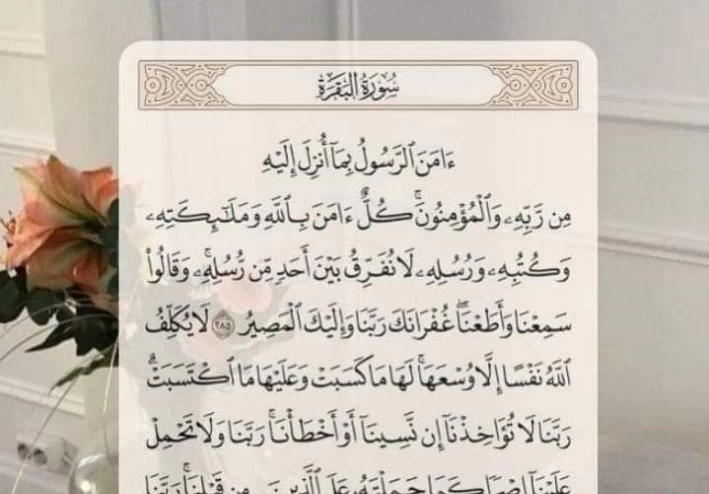 سُورَةُ البَقَرَةِ
ءَامَنَ ٱلرَّسُولُ بِمَآ أُنزِلَ إِلَيْهِ
مِن رَّبِّهِۦ وَٱلْمُؤْمِنُونَۚ كُلٌّ ءَامَنَ بِٱللَّهِ وَمَلَـٰٓئِكَتِهِۦ
وَكُتُبِهِۦ وَرُسُلِهِۦ لَا نُفَرِّقُ بَيْنَ أَحَدٍ مِّن رُّسُلِهِۦۚ وَقَالُوا۟
سَمِعْنَا وَأَطَعْنَاۖ غُفْرَانَكَ رَبَّنَا وَإِلَيْكَ ٱلْمَصِيرُ ٢٨٥ لَا يُكَلِّفُ
ٱللَّهُ نَفْسًا إِلَّا وُسْعَهَاۚ لَهَا مَا كَسَبَتْ وَعَلَيْهَا مَا ٱكْتَسَبَتْۗ
رَبَّنَا لَا تُؤَاخِذْنَآ إِن نَّسِينَآ أَوْ أَخْطَأْنَاۚ رَبَّنَا وَلَا تَحْمِلْ
عَلَيْنَآ إِصْرًا كَمَا حَمَلْتَهُۥ عَلَى ٱلَّذِينَ مِن قَبْلِنَاۚ رَبَّنَا